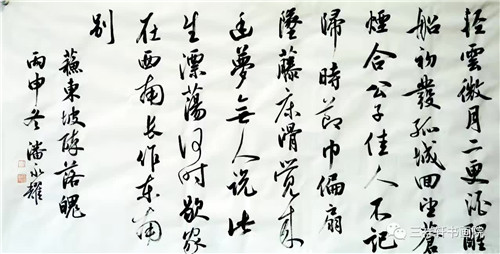 轻云微月二更酒醒
船初發孤城回望蒼
煙合公子佳人不记
歸時節巾偏扇
墜藤床滑觉来
幽夢無人說此
生漂蕩何时歇家
在西南长作东南
别
蘇東坡醉落魄
丙申冬潘永耀
三苍轩书画院